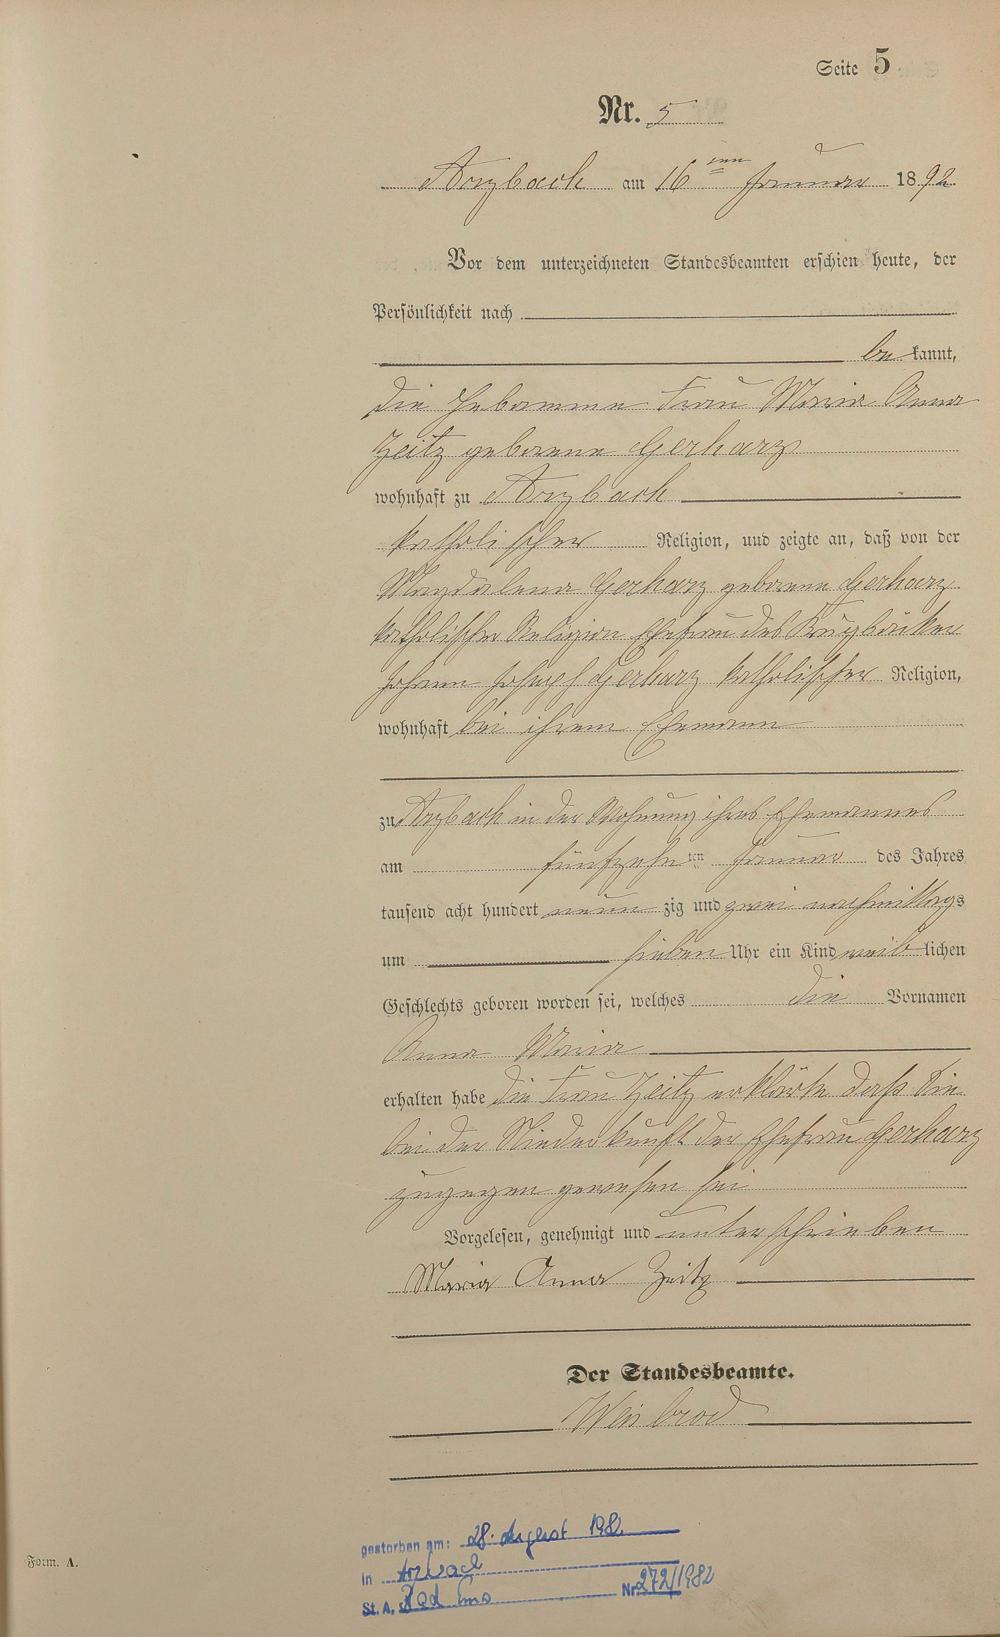 Seite 5
Nr. 5
Arzbach am 16ten Januar 1892
Vor dem unterzeichneten Standesbeamten erschien heute, der
Persönlichkeit nach
be kannt,
die Hebamme Frau Maria Anna
Zeitz geborene Gerharz
wohnhaft zu Arzbach
katholischer Religion, und zeigte an, daß von der
Magdalena Gerharz geborene Gerharz
katholischer Religion Ehefrau des Krugbäcker
Johann Joseph Gerharz katholischer Religion,
wohnhaft bei ihrem Ehemann
zu Arzbach in der Wohnung ihres Ehemannes
am fünfzehnten Januar des Jahres
tausend acht hundert neun zig und zwei nachmittags
um sieben Uhr ein Kind weib lichen
Geschlechts geboren worden sei, welches die Vornamen
Anna Maria
erhalten habe die Frau Zeitz erklärte daß Sie
bei der Niederkunft der Ehefrau Gerharz
zugegen gewesen sei
Vorgelesen, genehmigt und unterschrieben
Maria Anna Zeitz
Der Standesbeamte.
gestorben am: 28. August 1982
in Arzbach
St. A. Bad Ems Nr. 272/1982
Form. A.